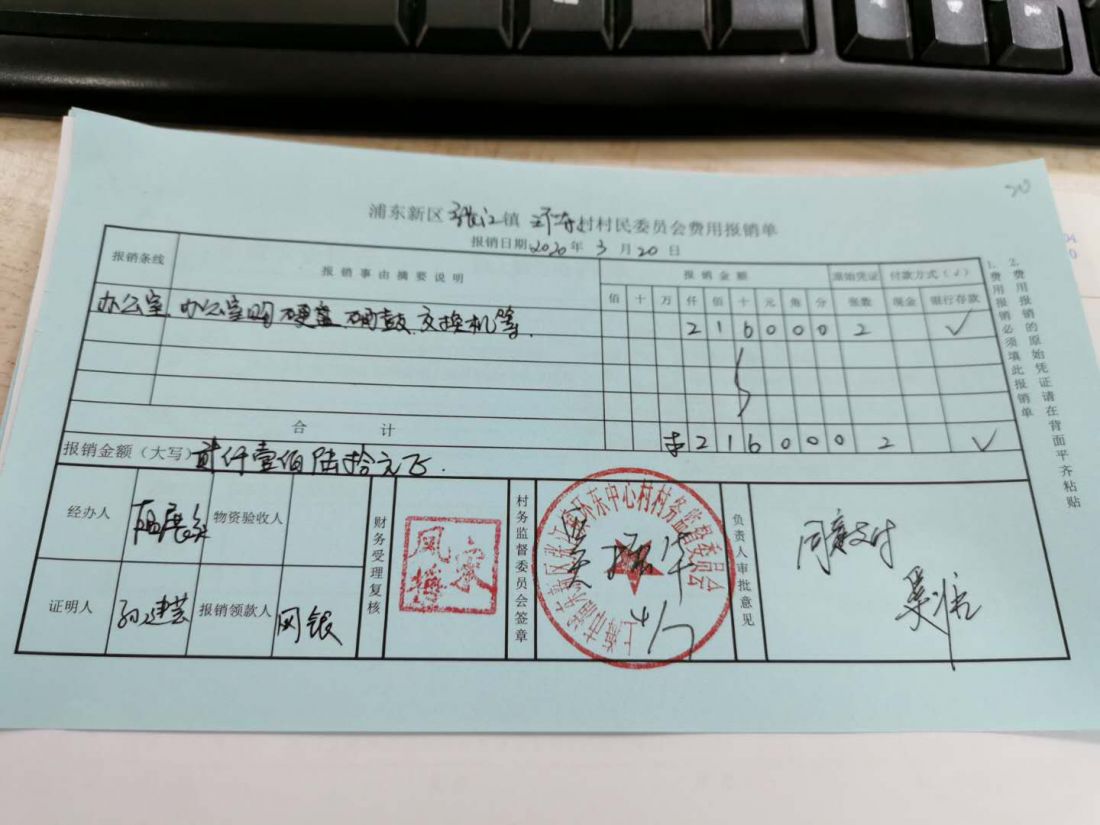 20
浦东新区张江镇环东村村民委员会费用报销单
报销日期2020年3月20日
报销条线 报销事由摘要说明 报销金额 原始凭证 付款方式(√)
佰 十 万 仟 佰 十 元 角 分 张数 现金 银行存款
办公室 办公室购硬盘、硒鼓、交换机等. 2 1 6 0 0 0 2 √
合计 ¥ 2 1 6 0 0 0 2 √
报销金额(大写)贰仟壹佰陆拾元正.
经办人 物资验收人
证明人 孙建芸 报销领款人 网银
财务受理复核
村务监督委员会签章
上海市浦东新区张江镇环东中心村村务监督委员会
负责人审批意见
同意支付
1.费用报销必须填此报销单
2.费用报销的原始凭证请在背面平齐粘贴